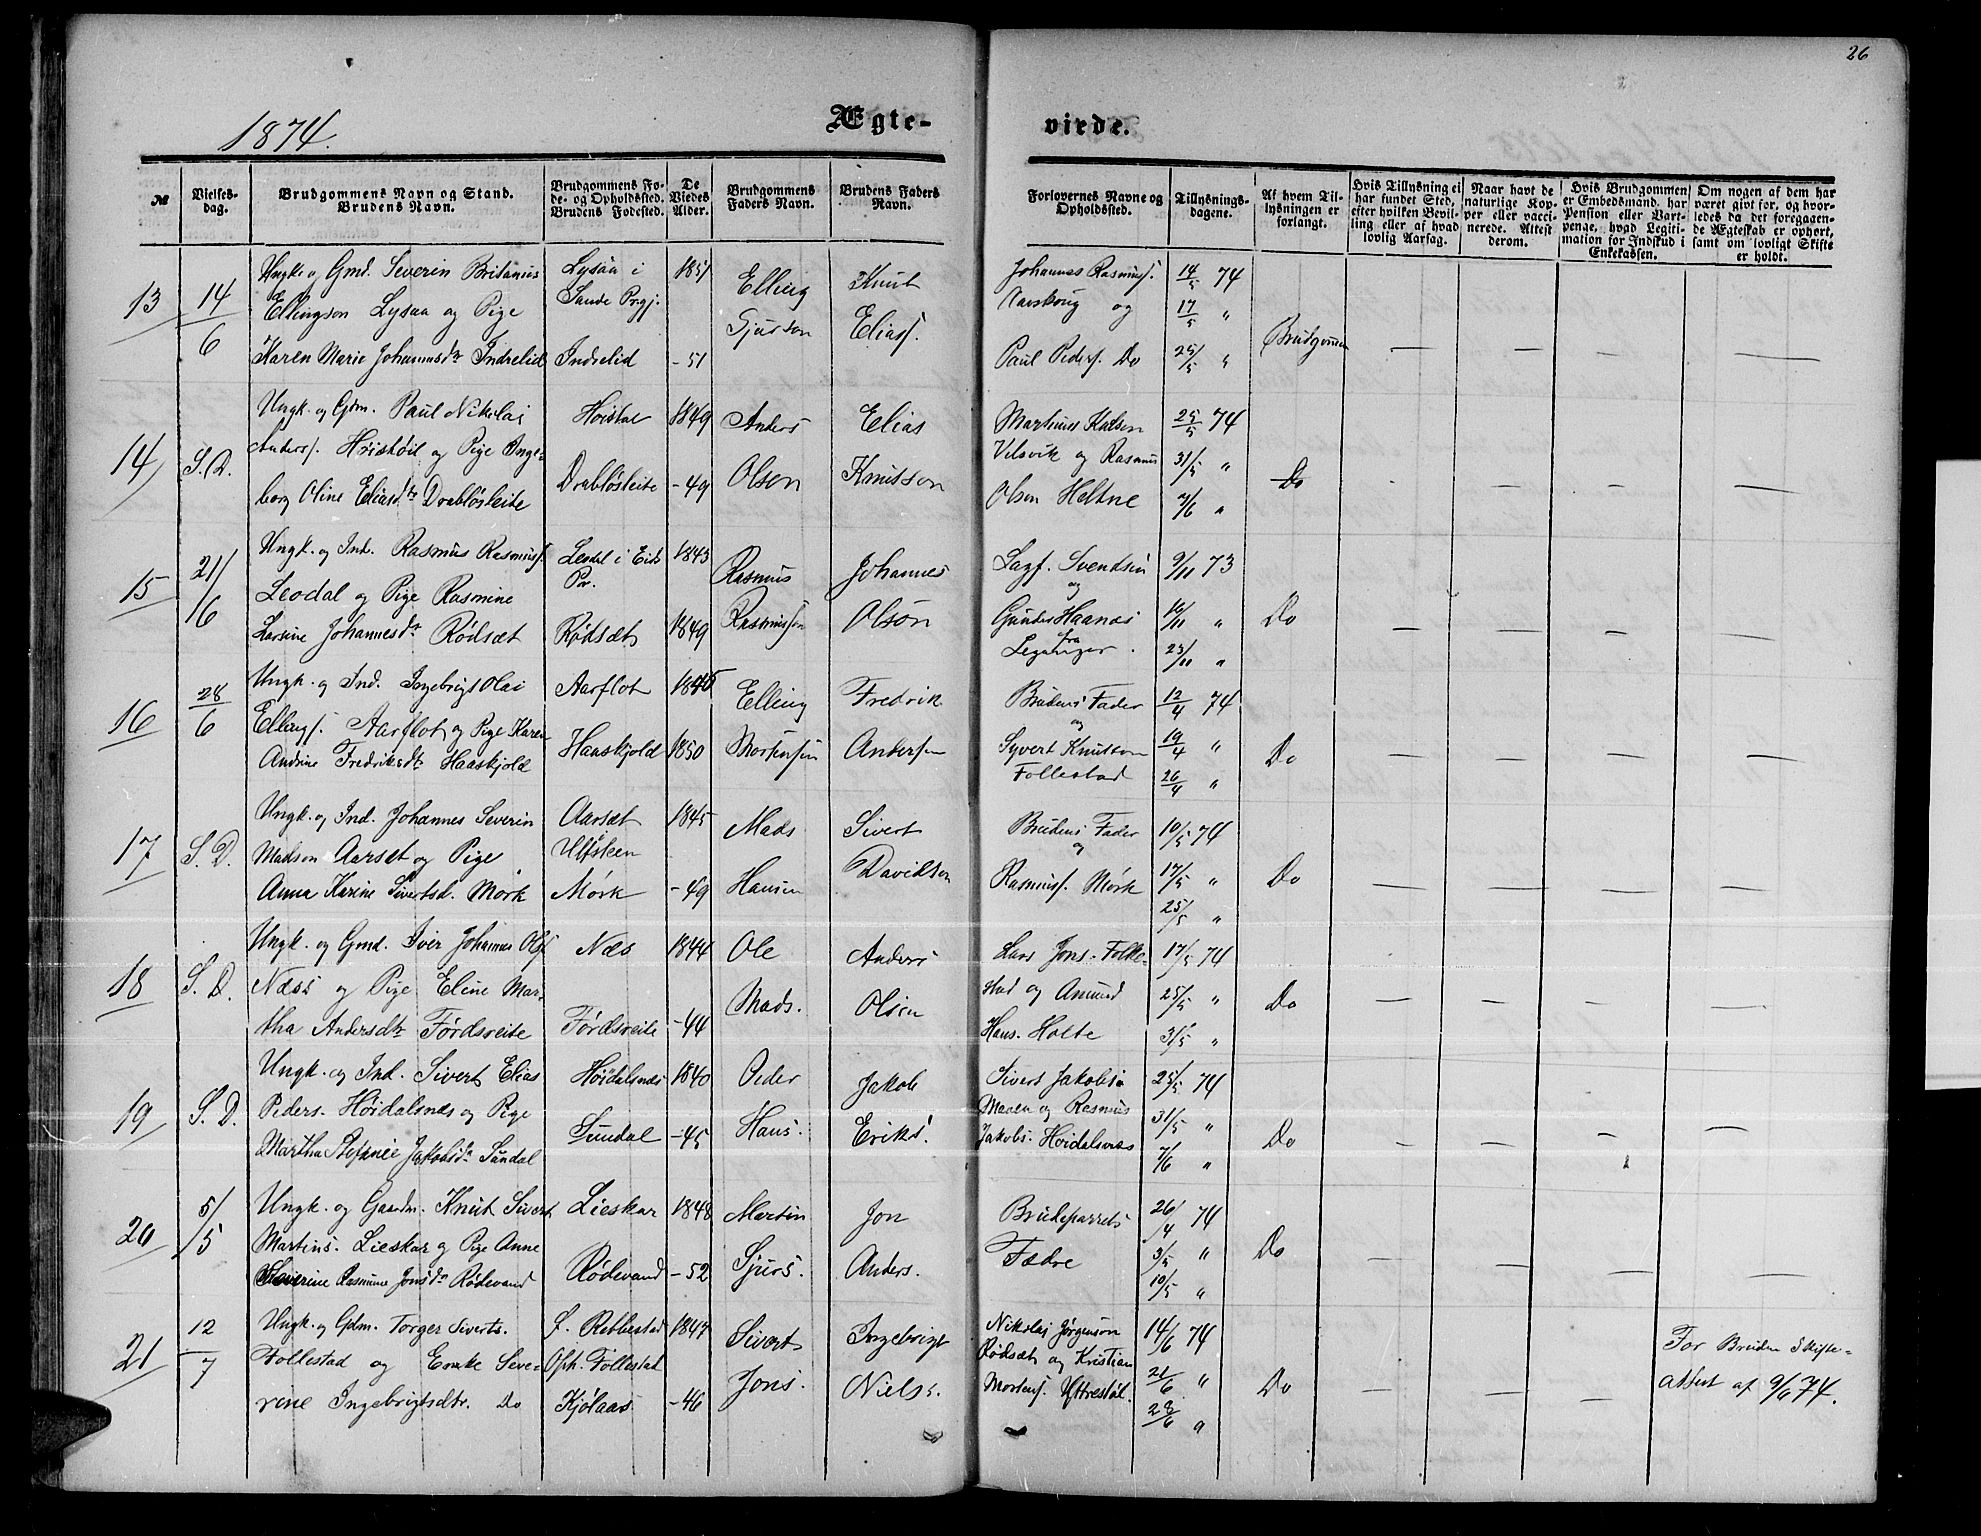 26
1874.
Ægte-
viede.
№
Vielses-
dag.
Brudgommens Navn og Stand.
Brudens Navn.
Brudgommens Fø-
de- og Opholdssted.
Brudens Fødested.
De
Viedes
Alder.
Brudgommens
Faders Navn.
Brudens Faders
Navn.
Forlovernes Navne og
Opholdssted.
Tillysnings-
dagene.
Af hvem Til-
lysningen er
forlangt.
Hvis Tillysning ei
har fundet Sted,
efter hvilken Bevil-
ling eller af hvad
lovlig Aarsag.
Naar havt de
naturlige Kop-
per eller vacci-
nerede. Attest
derom.
Hvis Brudgommen
er Embedsmand, har
Pension eller Vart-
penge, hvad Legiti-
mation for Indskud i
Enkekassen.
Om nogen af dem har
været givt før, og hvor-
ledes da det foregaaen-
de Ægteskab er ophørt,
samt om lovligt Skifte
er holdt.
13
14/6
Ungk. og Gmd. Severin Britanius
Ellingson Lysaa og Pige
Karen Marie Johannesdtr Indrelid
Lysaa i
Sande Prgj.
Indrelid
1851
-51
Elling
Gjurson
Knut
Eliass.
Johannes Rasmuss.
Aarskoug og
Paul Peders. Do
14/5 74
17/5 "
25/5 "
Brudgomen
14
S. D.
Ungk. og Gdm. Paul Nikolai
Anders. Høistøil og Pige Inge-
borg Oline Eliasdtr Drabløsleite
Høistøl
Drabløsleite
1849
-49
Anders
Olsen
Elias
Knutson
Martinus Kolsen
Velsvik og Rasmus
Olsen Heltne
25/5 74
31/5 "
7/6 "
Do
15
21/16
Ungk. og Ind. Rasmus Rasmuss.
Leodal og Pige Rasmine
Larsine Johannesdtr Rødsæt
Leodal i Eids
Pr.
Rødsæt
1843
1849
Rasmus
Rasmussen
Johannes
Olson
Lagf. Svendsen
og
Gunder Haanes
fra
Leganger.
9/11 73
16/11 "
23/11 "
Do
16
28/6
Ungk. og Ind. Ingebrigt Olai
Ellings. Aarflot og Pige Karen
Andrine Fredriksdtr Haaskjold
Aarflot
Haaskjold
1845
1850
Elling
Mortensen
Fredrik
Andersen
Brudens Fader
og
Syvert Knutson
Follestad
12/4 74
19/4 "
26/4 "
Do
17
S. D.
Ungk. og Ind. Johannes Severin
Madson Aarset og Pige
Anna Karine Sivertsd. Mork
Aarsæt
Ulfsteen
Mørk
1845
-49
Mads
Hansen
Sivert
Davidson
Brudens Fader
og
Rasmuss. Mørk
10/5 74
17/5 "
25/5 "
Do
18
S. D.
Ungk. og Gmd. Iver Johannes Ols.
Næss og Pige Eline Mar-
tha Andersdtr Førdsreite
Næs
Førdsreite
1844
-44
Ole
Mads.
Anders
Olsen
Lars Jons. Folle-
stad og Amund
Hans. Holte
17/5 74
25/5 "
31/5 "
Do
19
S. D.
Ungk. og Ind. Sivert Elias
Peders. Høidalsnæs og Pige
Martha Stefanie Jakobsdtr Sundal
Høidalsnæs
Sundal
1840
-45
Peder
Hans.
Jakob
Eriks.
Sivert Jakobs.
Maaen og Rasmus
Jakobs. Høidalsnæs
25/5 74
31/5 "
7/6 "
Do
20
5/5
Ungk. og Gaardm. Knut Sivert
Martins. Lieskar og Pige Anne
Severine Rasmine Jonsdtr Rødevand
Lieskar
Rødevand
1848
-52
Martin
Sjurs.
Jon
Anders.
Brudeparrets
Fædre
26/4 74
3/5 "
10/5 "
Do
21
12/7
Ungk. og Gdm. Torger Siverts.
Follestad og Enke Seve-
rine Ingebrigtsdtr. Do
F. Rebbestad
Oph. Follestad
Kjølaas
1847
-46
Sivert
Jons.
Ingebrigt
Niels.
Nikolai Jørgenson
Rødsæt og Kristian
Mortens. Yttrestøl.
14/6 74
21/6 "
28/6 "
Do
For Bruden Skifte-
attest af 9/6 74.